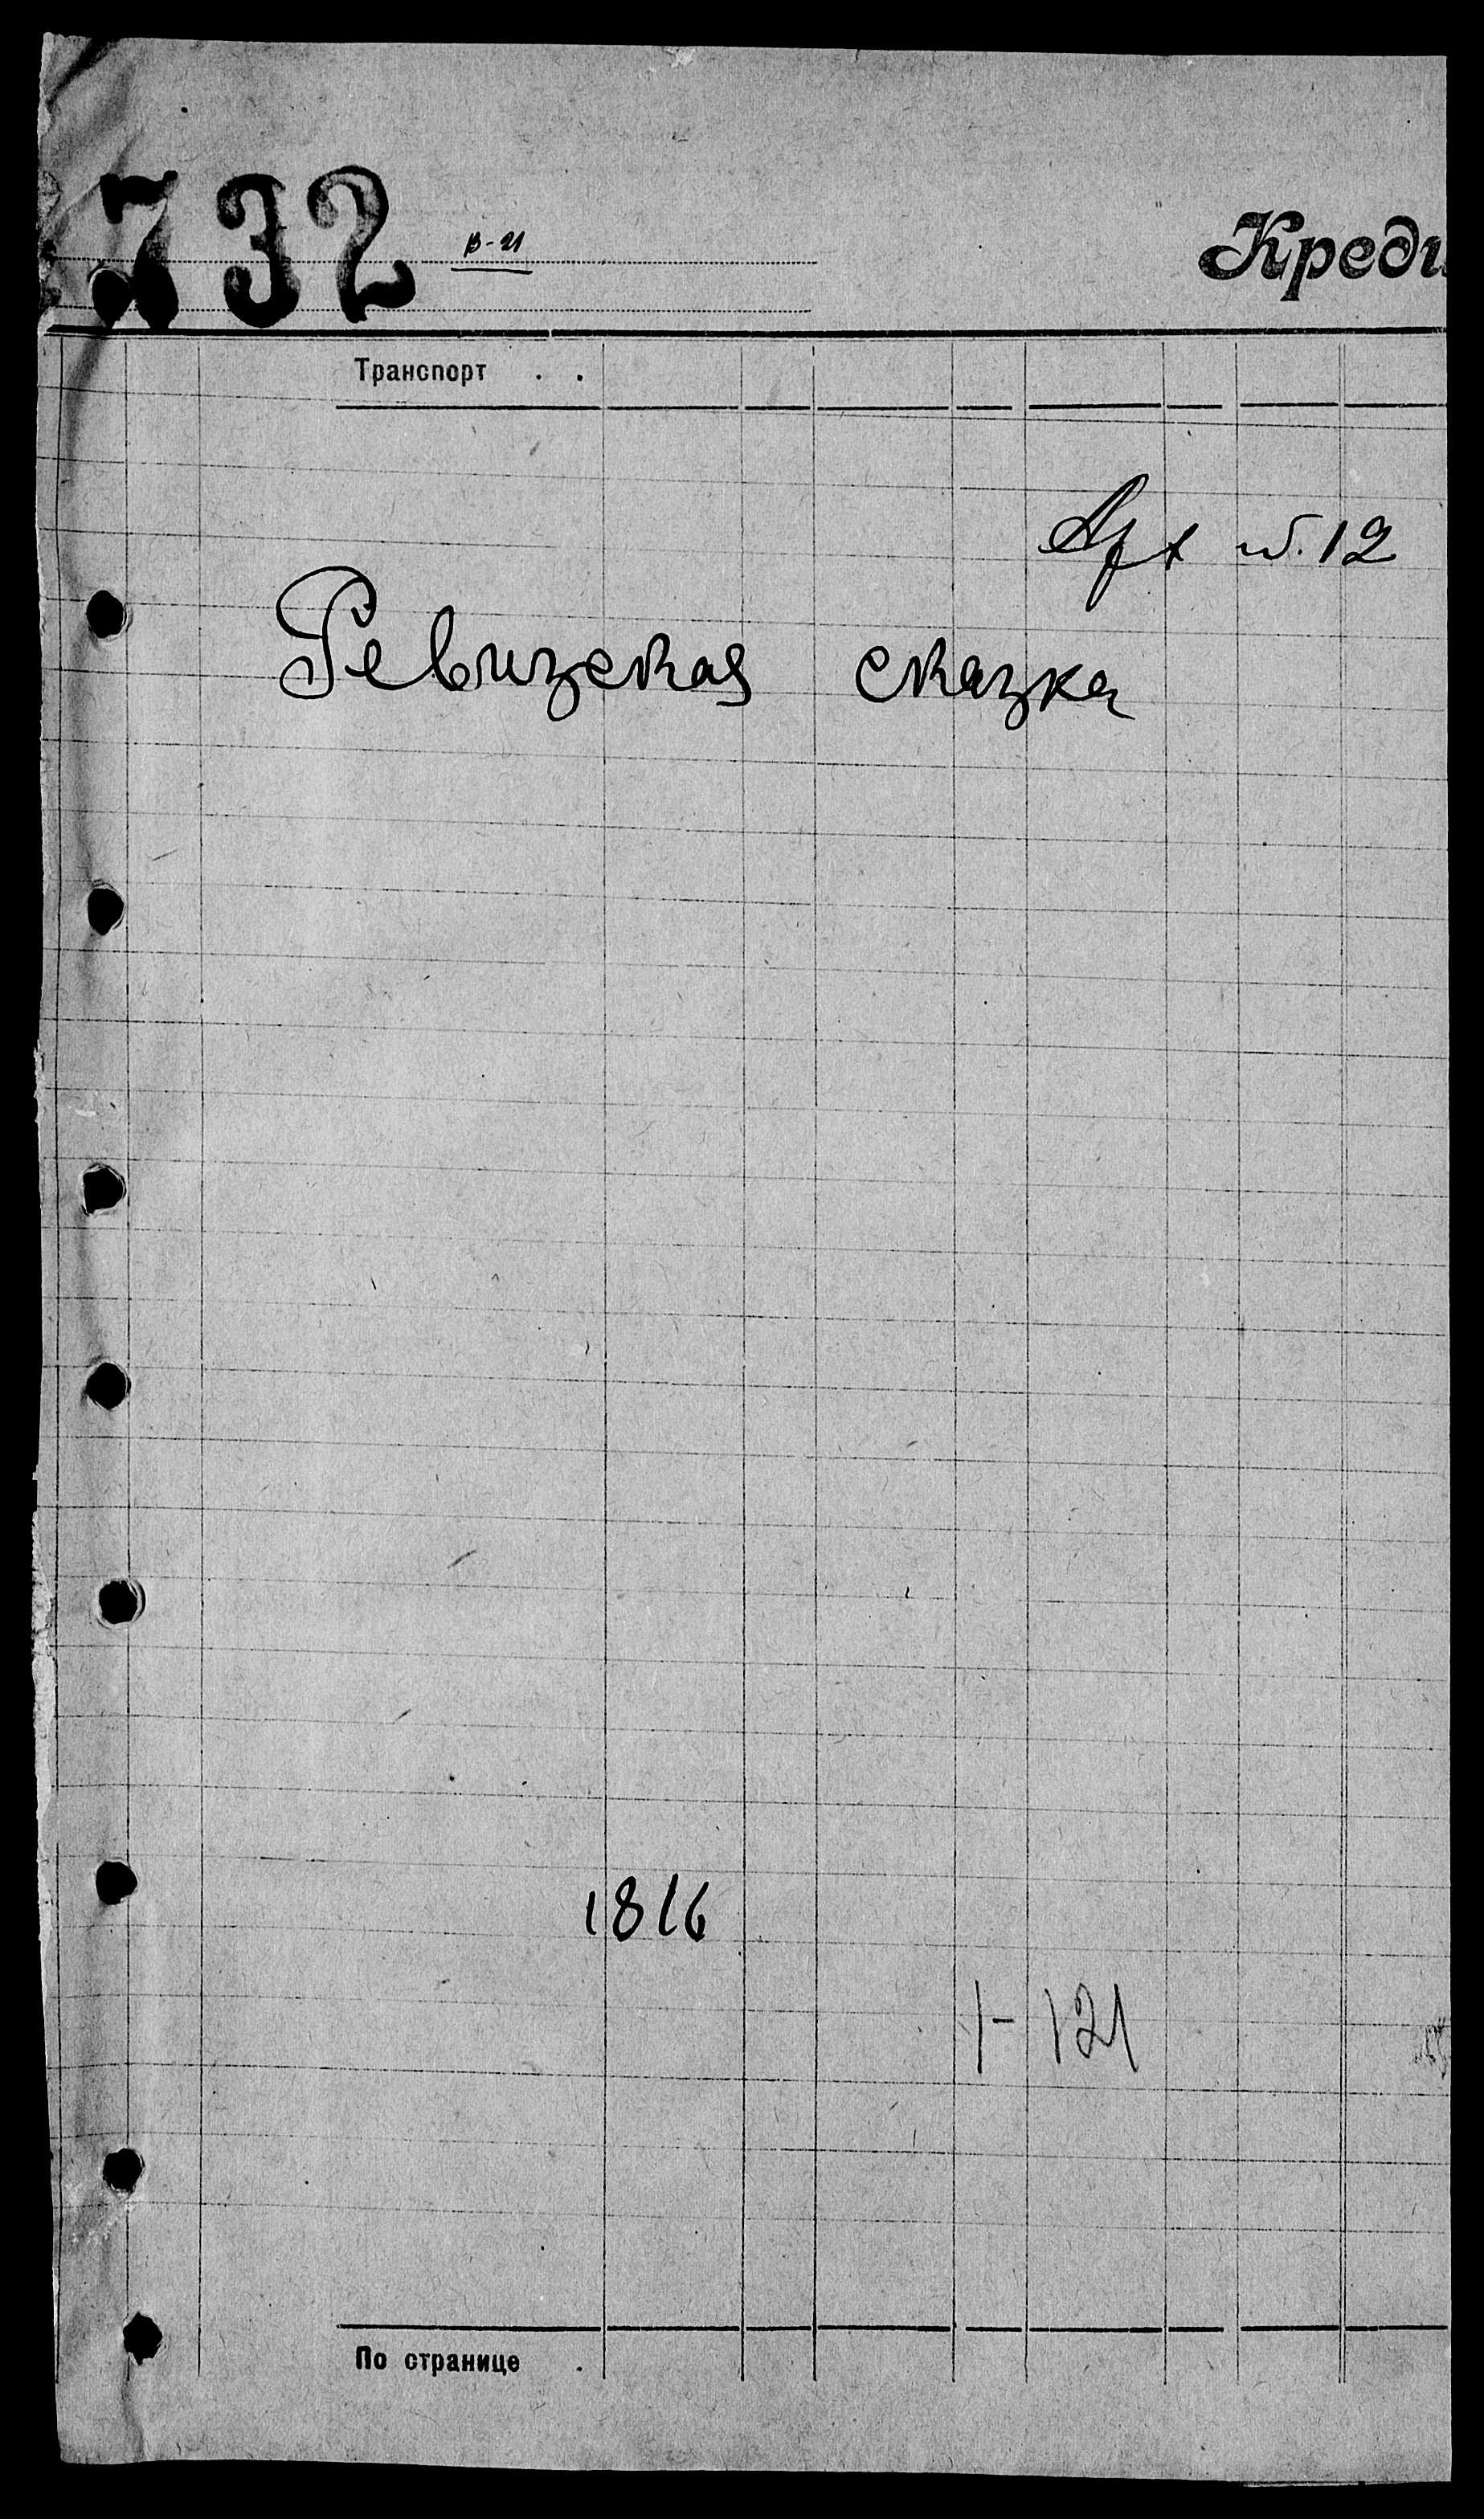 732 В-21
Креди
Транспорт . .
Арх №. 12
Ревизская сказка
1816
1-121
По странице .